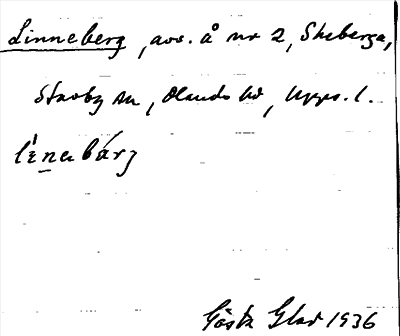 Linneberg, avs. å nr 2, Skeberga,
Stavby sn, Olands hd, Upps. l.
lìnabárj
Gösta Glad 1936